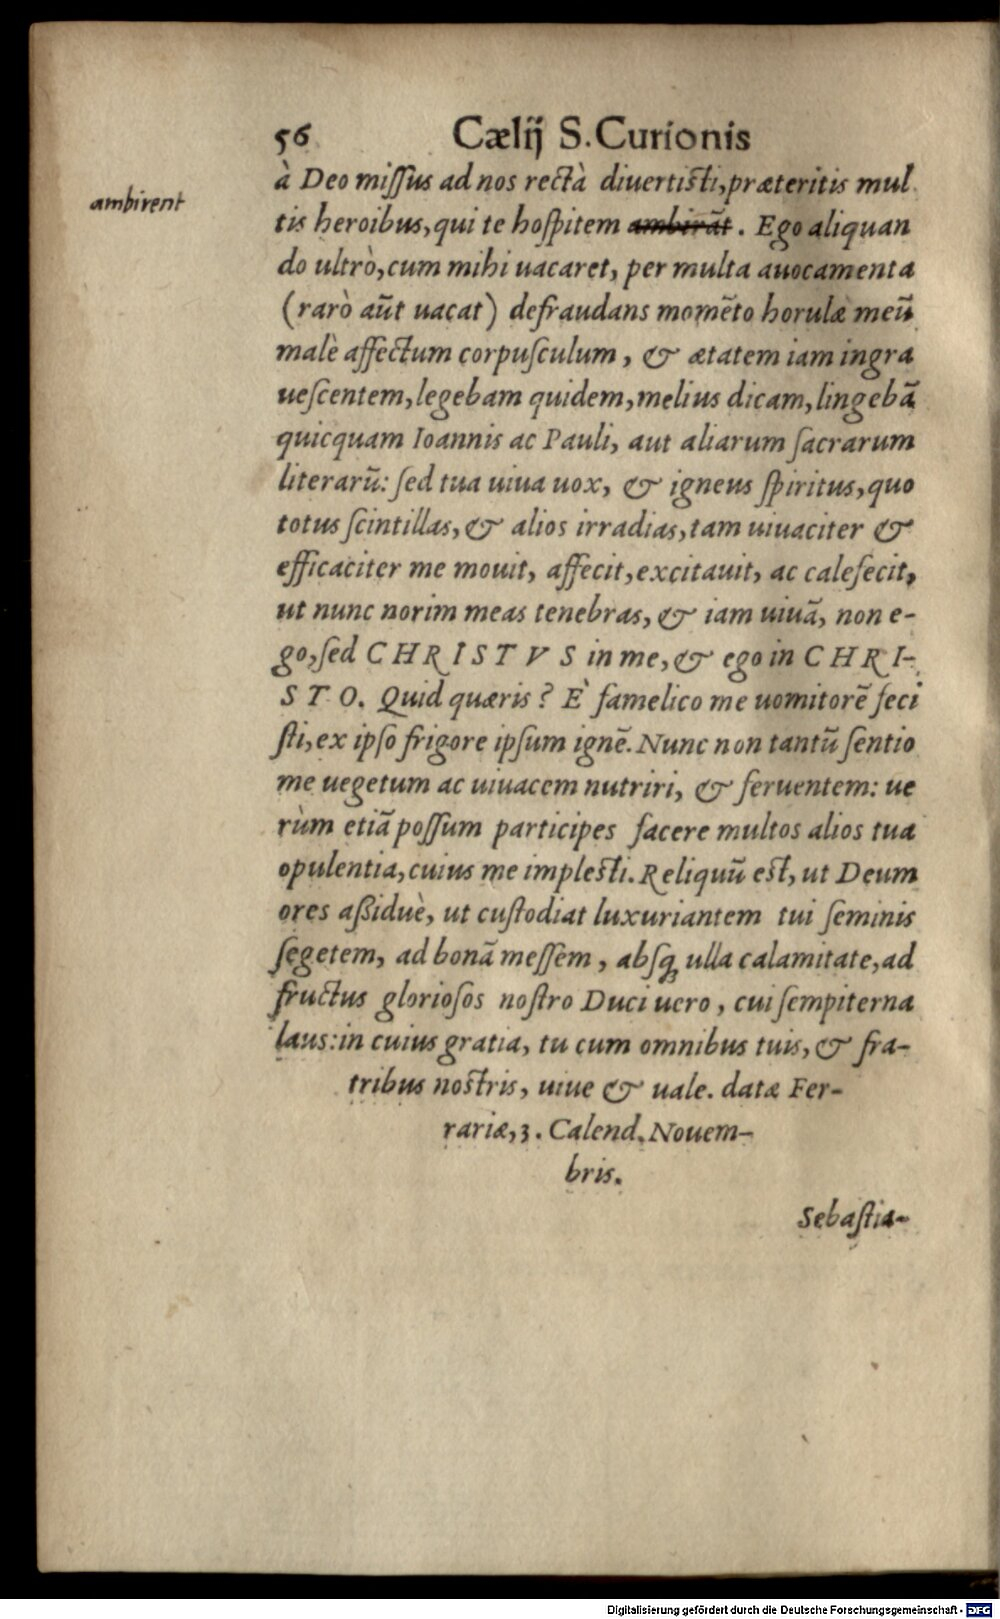 56 Cælij S. Curionis
à Deo missus ad nos rectà diuertisti, præteritis mul
ambirent
tis heroibus, qui te hospitem ambirāt. Ego aliquan
do ultrò, cum mihi uacaret, per multa auocamenta
(rarò aūt uacat) defraudans momēto horulæ meū
malè affectum corpusculum, & ætatem iam ingra
uescentem, legebam quidem, melius dicam, lingebā
quicquam Ioannis ac Pauli, aut aliarum sacrarum
literarū: sed tua uiua uox, & igneus spiritus, quo
totus scintillas, & alios irradias, tam uiuaciter &
efficaciter me mouit, affecit, excitauit, ac calefecit,
ut nunc norim meas tenebras, & iam uiuā, non e-
go, sed CHRISTVS in me, & ego in CHRI-
STO. Quid quæris? È famelico me uomitorē feci
sti, ex ipso frigore ipsum ignē. Nunc non tantū sentio
me uegetum ac uiuacem nutriri, & feruentem: ue
rùm etiā possum participes facere multos alios tua
opulentia, cuius me implesti. Reliquū est, ut Deum
ores aßiduè, ut custodiat luxuriantem tui seminis
segetem, ad bonā messem, absq; ulla calamitate, ad
fructus gloriosos nostro Duci uero, cui sempiterna
laus: in cuius gratia, tu cum omnibus tuis, & fra-
tribus nostris, uiue & uale. datæ Fer-
rariæ, 3. Calend. Nouem-
bris.
Sebastia-
Digitalisierung gefördert durch die Deutsche Forschungsgemeinschaft - DFG